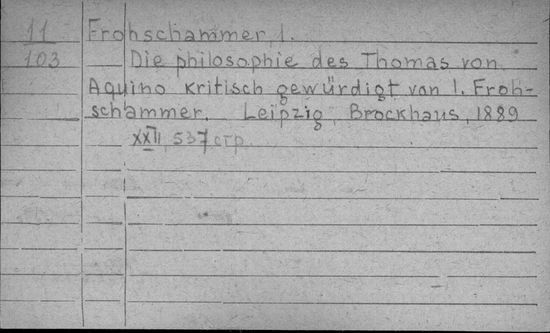 11
103
Frohschammer, I.
Die philosophie des Thomas von
Aquino kritisch gewürdigt von I. Froh-
schammer. Leipzig, Brockhaus, 1889
XXII, 537 стр.